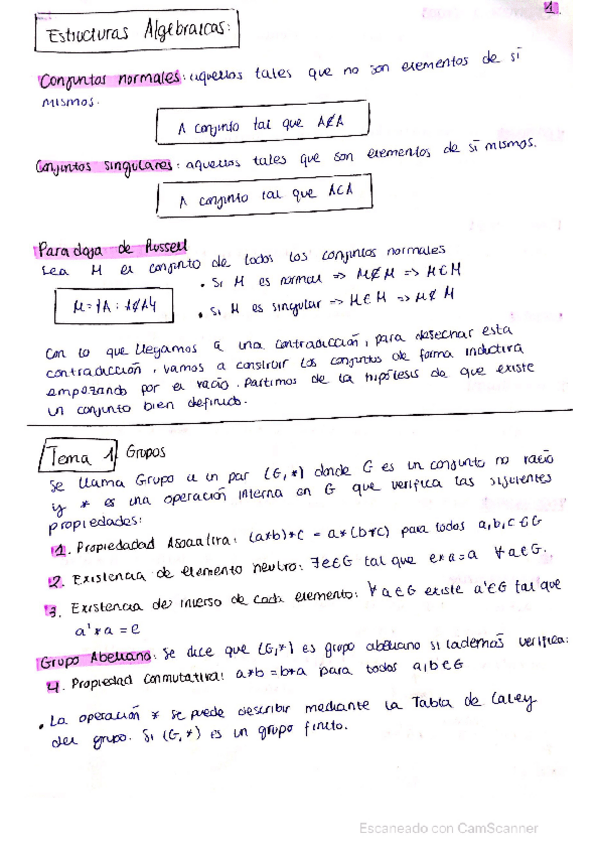 1
Estructuras Algebraicas:
Conjuntos normales: aquellos tales que no son elementos de sí
mismos.
A conjunto tal que A∉A
Conjuntos singulares: aquellos tales que son elementos de sí mismos.
A conjunto tal que A∈A
Paradoja de Russell
Sea M el conjunto de todos los conjuntos normales
M={A : A∉A}
• Si M es normal => M∉M => M∈M
• Si M es singular => M∈M => M∉M
Con lo que llegamos a una contradicción, para desechar esta
contradicción, vamos a construir los conjuntos de forma inductiva
empezando por el vacío. Partimos de la hipótesis de que existe
un conjunto bien definido.
Tema 1 Grupos
Se llama Grupo a un par (G,*) donde G es un conjunto no vacío
y * es una operación interna en G que verifica las siguientes
propiedades:
1. Propiedadad Asociativa: (a*b)*c = a*(b*c) para todos a,b,c∈G
2. Existencia de elemento neutro: ∃e∈G tal que e*a=a ∀a∈G.
3. Existencia de inverso de cada elemento: ∀a∈G existe a'∈G tal que
a'*a=e
Grupo Abeliano: Se dice que (G,*) es grupo abeliano si además verifica:
4. Propiedad conmutativa: a*b=b*a para todos a,b∈G
• La operación * se puede describir mediante la Tabla de Caley
del grupo. Si (G,*) es un grupo finito.
Escaneado con CamScanner